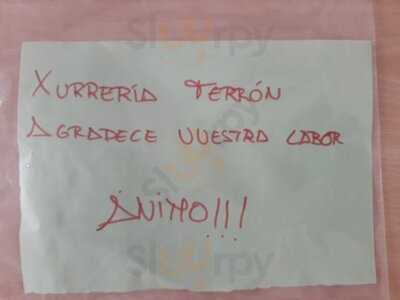 Xurrería Terrón
Agradece vuestra labor
Ánimo!!!
Slurrpy
Slurrpy
Slurrpy